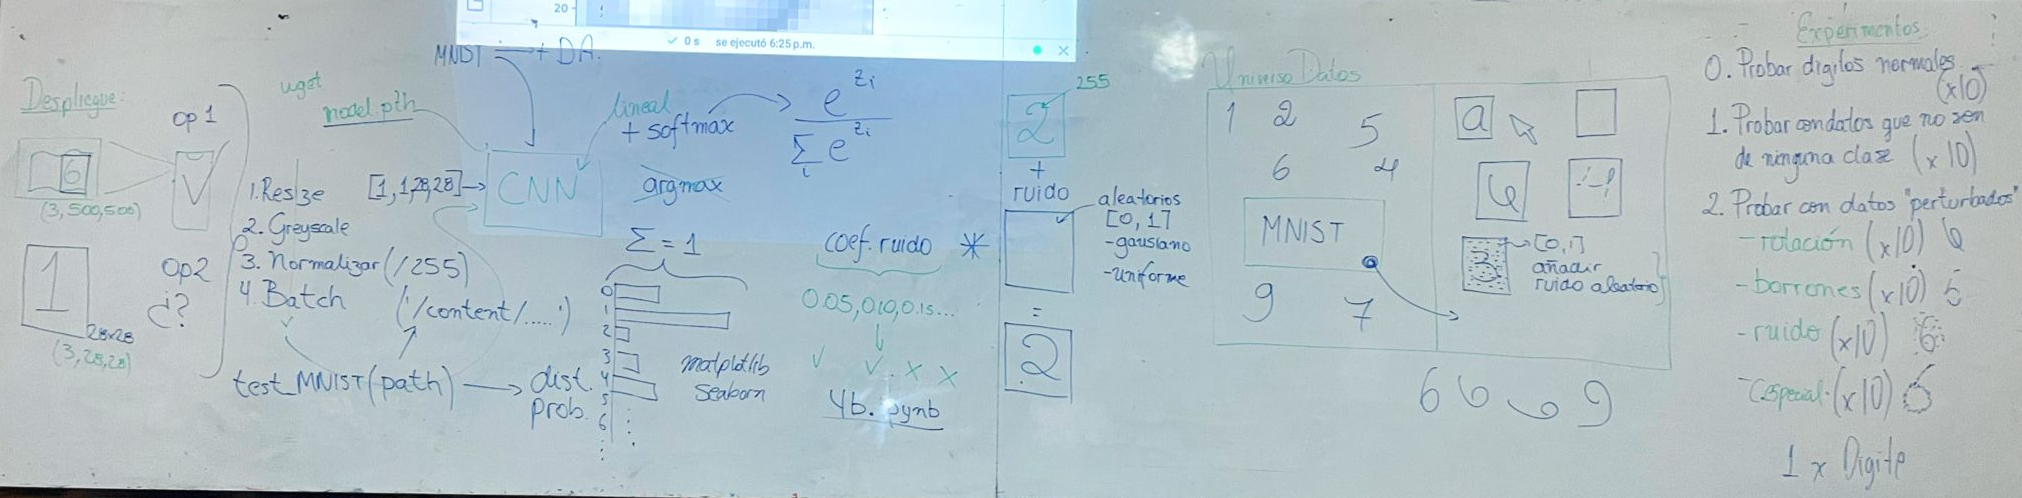 20
0 s se ejecutó 6:25 p.m.
MNIST + DA.
Despliegue:
6
(3, 500, 500)
1
28x28
(3, 28, 28)
op1
op2
¿?
wget
model.pth
1. Resize
2. Greyscale
3. Normalizar (/255)
4. Batch
[1, 1, 28, 28]
CNN
lineal
+ softmax
e^{z_i}
Σ_i e^{z_i}
argmax
('/content/.....')
test_MNIST(path)
dist.
prob.
Σ = 1
0
1
2
3
4
5
6
matplotlib
seaborn
coef. ruido *
0.05, 0.10, 0.15...
✓ ✓ . x x
4b. pynb
255
2
+
ruido
aleatorios
[0, 1]
- gausiano
- uniforme
=
2
Universo Datos
1 2 5
6 4
MNIST
9 7
a
3
[0,1]
añadir
ruido aleatorio
6
9
Experimentos
0. Probar digitos normales
(x10)
1. Probar con datos que no sen
de ninguna clase (x10)
2. Probar con datos "perturbados"
- rotación (x10) 6
- borrones (x10) 5
- ruido (x10) 6
(x10) 5
1 x Digito